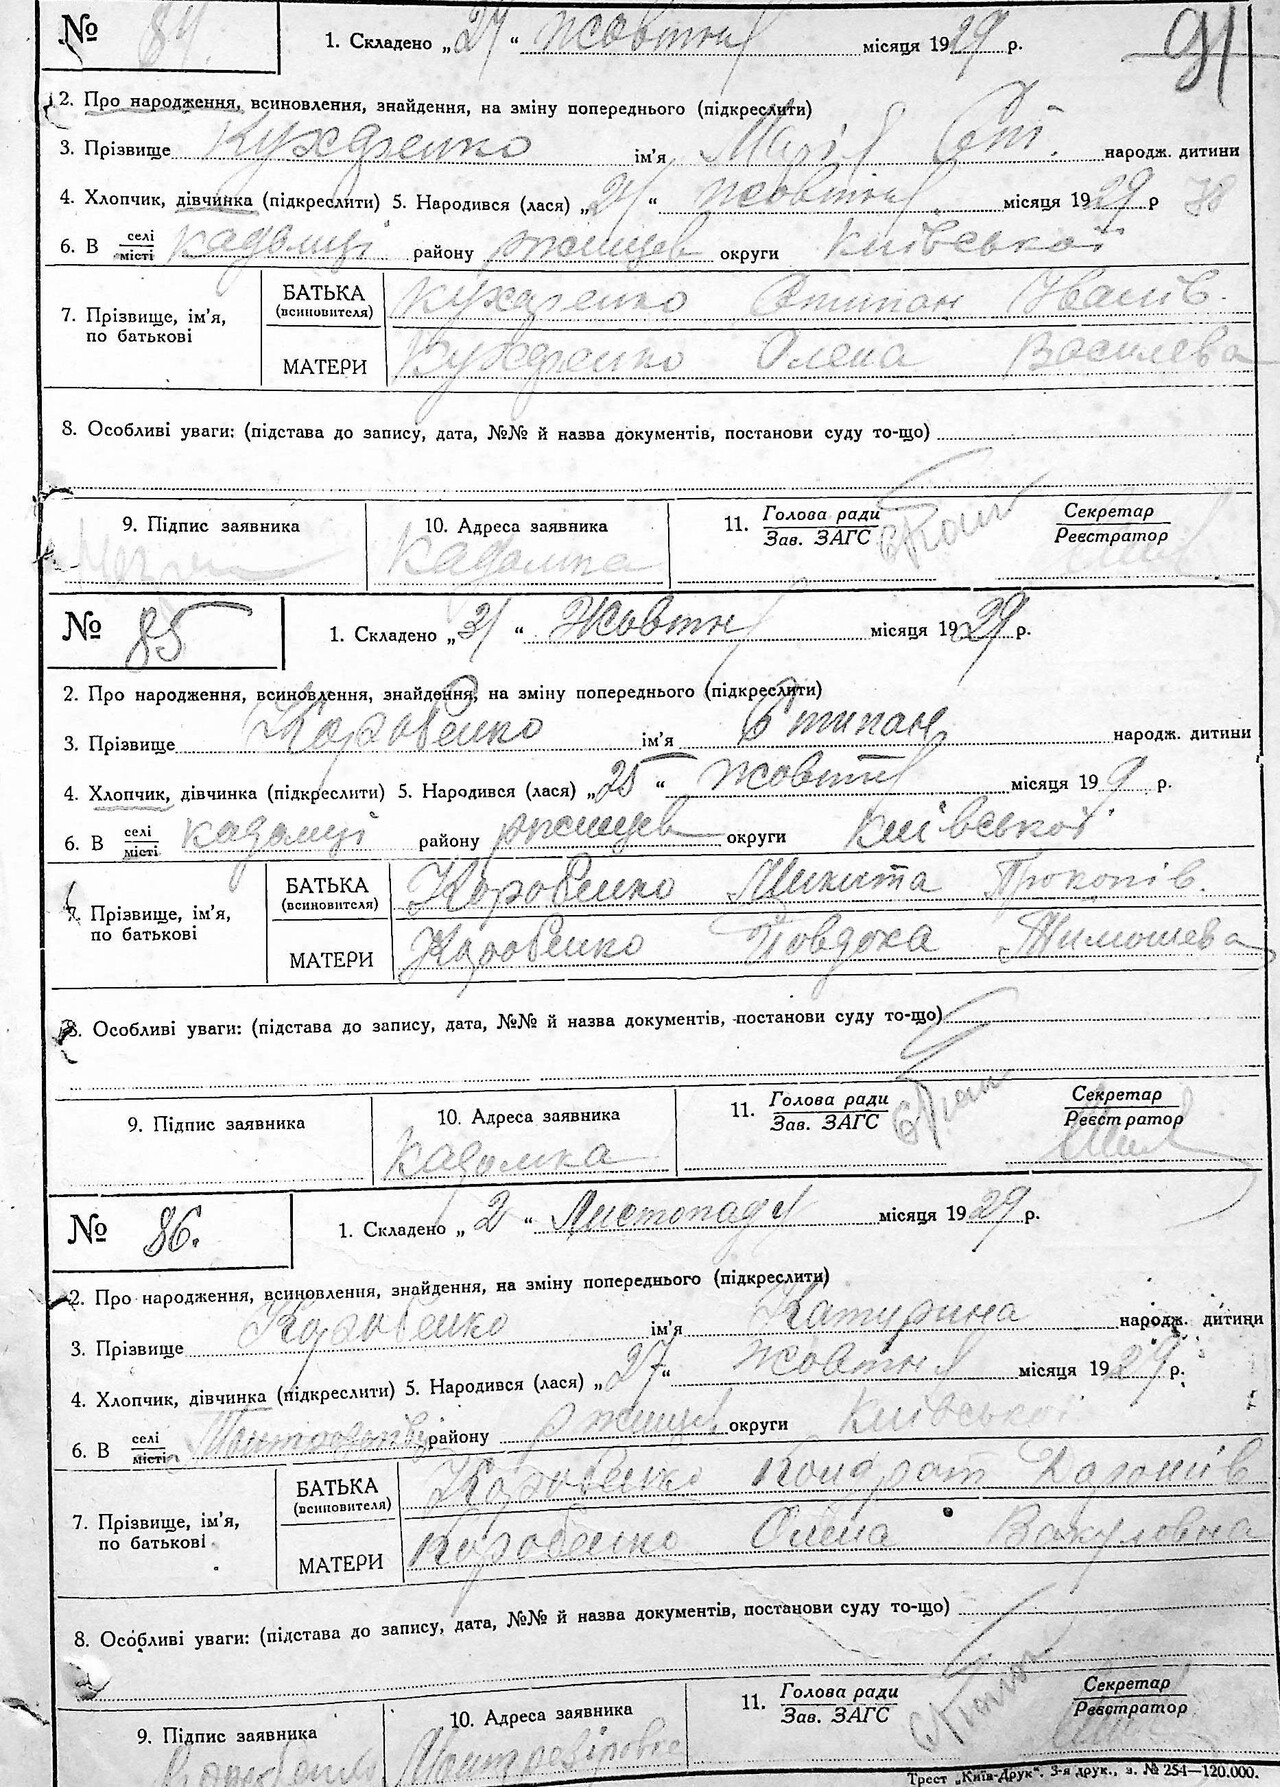 № 84. 1. Складено „24“ жовтня місяця 1929 р. 91
2. Про народження, всиновлення, знайдення, на зміну попереднього (підкреслити)
3. Прізвище Кухаренко ім'я Марія Сті. народж. дитини
4. Хлопчик, дівчинка (підкреслити) 5. Народився (лася) „21“ жовтня місяця 1929 р
6. В селі/місті кадомці району ржищев округи київської
7. Прізвище, ім'я, по батькові
БАТЬКА (всиновителя) Кухаренко Степан Іванів.
МАТЕРИ Кухаренко Олена Василева
8. Особливі уваги: (підстава до запису, дата, №№ й назва документів, постанови суду то-що)
9. Підпис заявника 10. Адреса заявника 11. Голова ради/Зав. ЗАГС Секретар/Реєстратор
Кадомка
№ 85 1. Складено „31“ Жовтня місяця 1929 р.
2. Про народження, всиновлення, знайдення, на зміну попереднього (підкреслити)
3. Прізвище Коробенко ім'я Стипан народж. дитини
4. Хлопчик, дівчинка (підкреслити) 5. Народився (лася) „25“ жовтня місяця 199 р.
6. В селі/місті кадомці району ржищев округи київської
7. Прізвище, ім'я, по батькові
БАТЬКА (всиновителя) Коробенко Микита Прокопів.
МАТЕРИ Коробенко Йовдоха Тимошева
8. Особливі уваги: (підстава до запису, дата, №№ й назва документів, постанови суду то-що)
9. Підпис заявника 10. Адреса заявника 11. Голова ради/Зав. ЗАГС Секретар/Реєстратор
Кадомка
№ 86. 1. Складено „2“ Листопадя місяця 1929 р.
2. Про народження, всиновлення, знайдення, на зміну попереднього (підкреслити)
3. Прізвище Коробенко ім'я Катурина народж. дитини
4. Хлопчик, дівчинка (підкреслити) 5. Народився (лася) „27“ жовтня місяця 1929 р.
6. В селі/місті району ржищев округи київської
7. Прізвище, ім'я, по батькові
БАТЬКА (всиновителя) Коробенко Кондрат
МАТЕРИ Коробенко Олена Вакуловна
8. Особливі уваги: (підстава до запису, дата, №№ й назва документів, постанови суду то-що)
9. Підпис заявника 10. Адреса заявника 11. Голова ради/Зав. ЗАГС Секретар/Реєстратор
Коробенко
Трест „Київ-Друк“. 3-я друк., з. № 254—120.000.